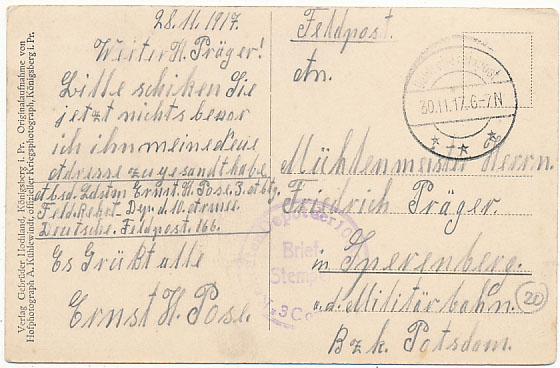 Verlag Gebrüder Hochland, Königsberg i. Pr. Originalaufnahme von
Hofphotograph A. Kühlewindt, offizieller Kriegsphotograph, Königsberg i. Pr.
28.11.1917.
Werter H. Präger!
Bitte schiken Sie
jetzt nichts bevor
ich ihm meine neue
Adresse zugesandt habe
Ernst H. Pose. 3.
Feld. d. 10. Armee.
Deutsche. Feldpost. 166.
Es Grüßt alle
Ernst H. Pose.
Feldpost.
An.
30.11.17. 6-7N
Mühlenmeister Herrn.
Friedrich Präger.
in Sperenberg.
a.d. Militärbahn.
Bzk. Potsdam.
20
Brief
Stempel